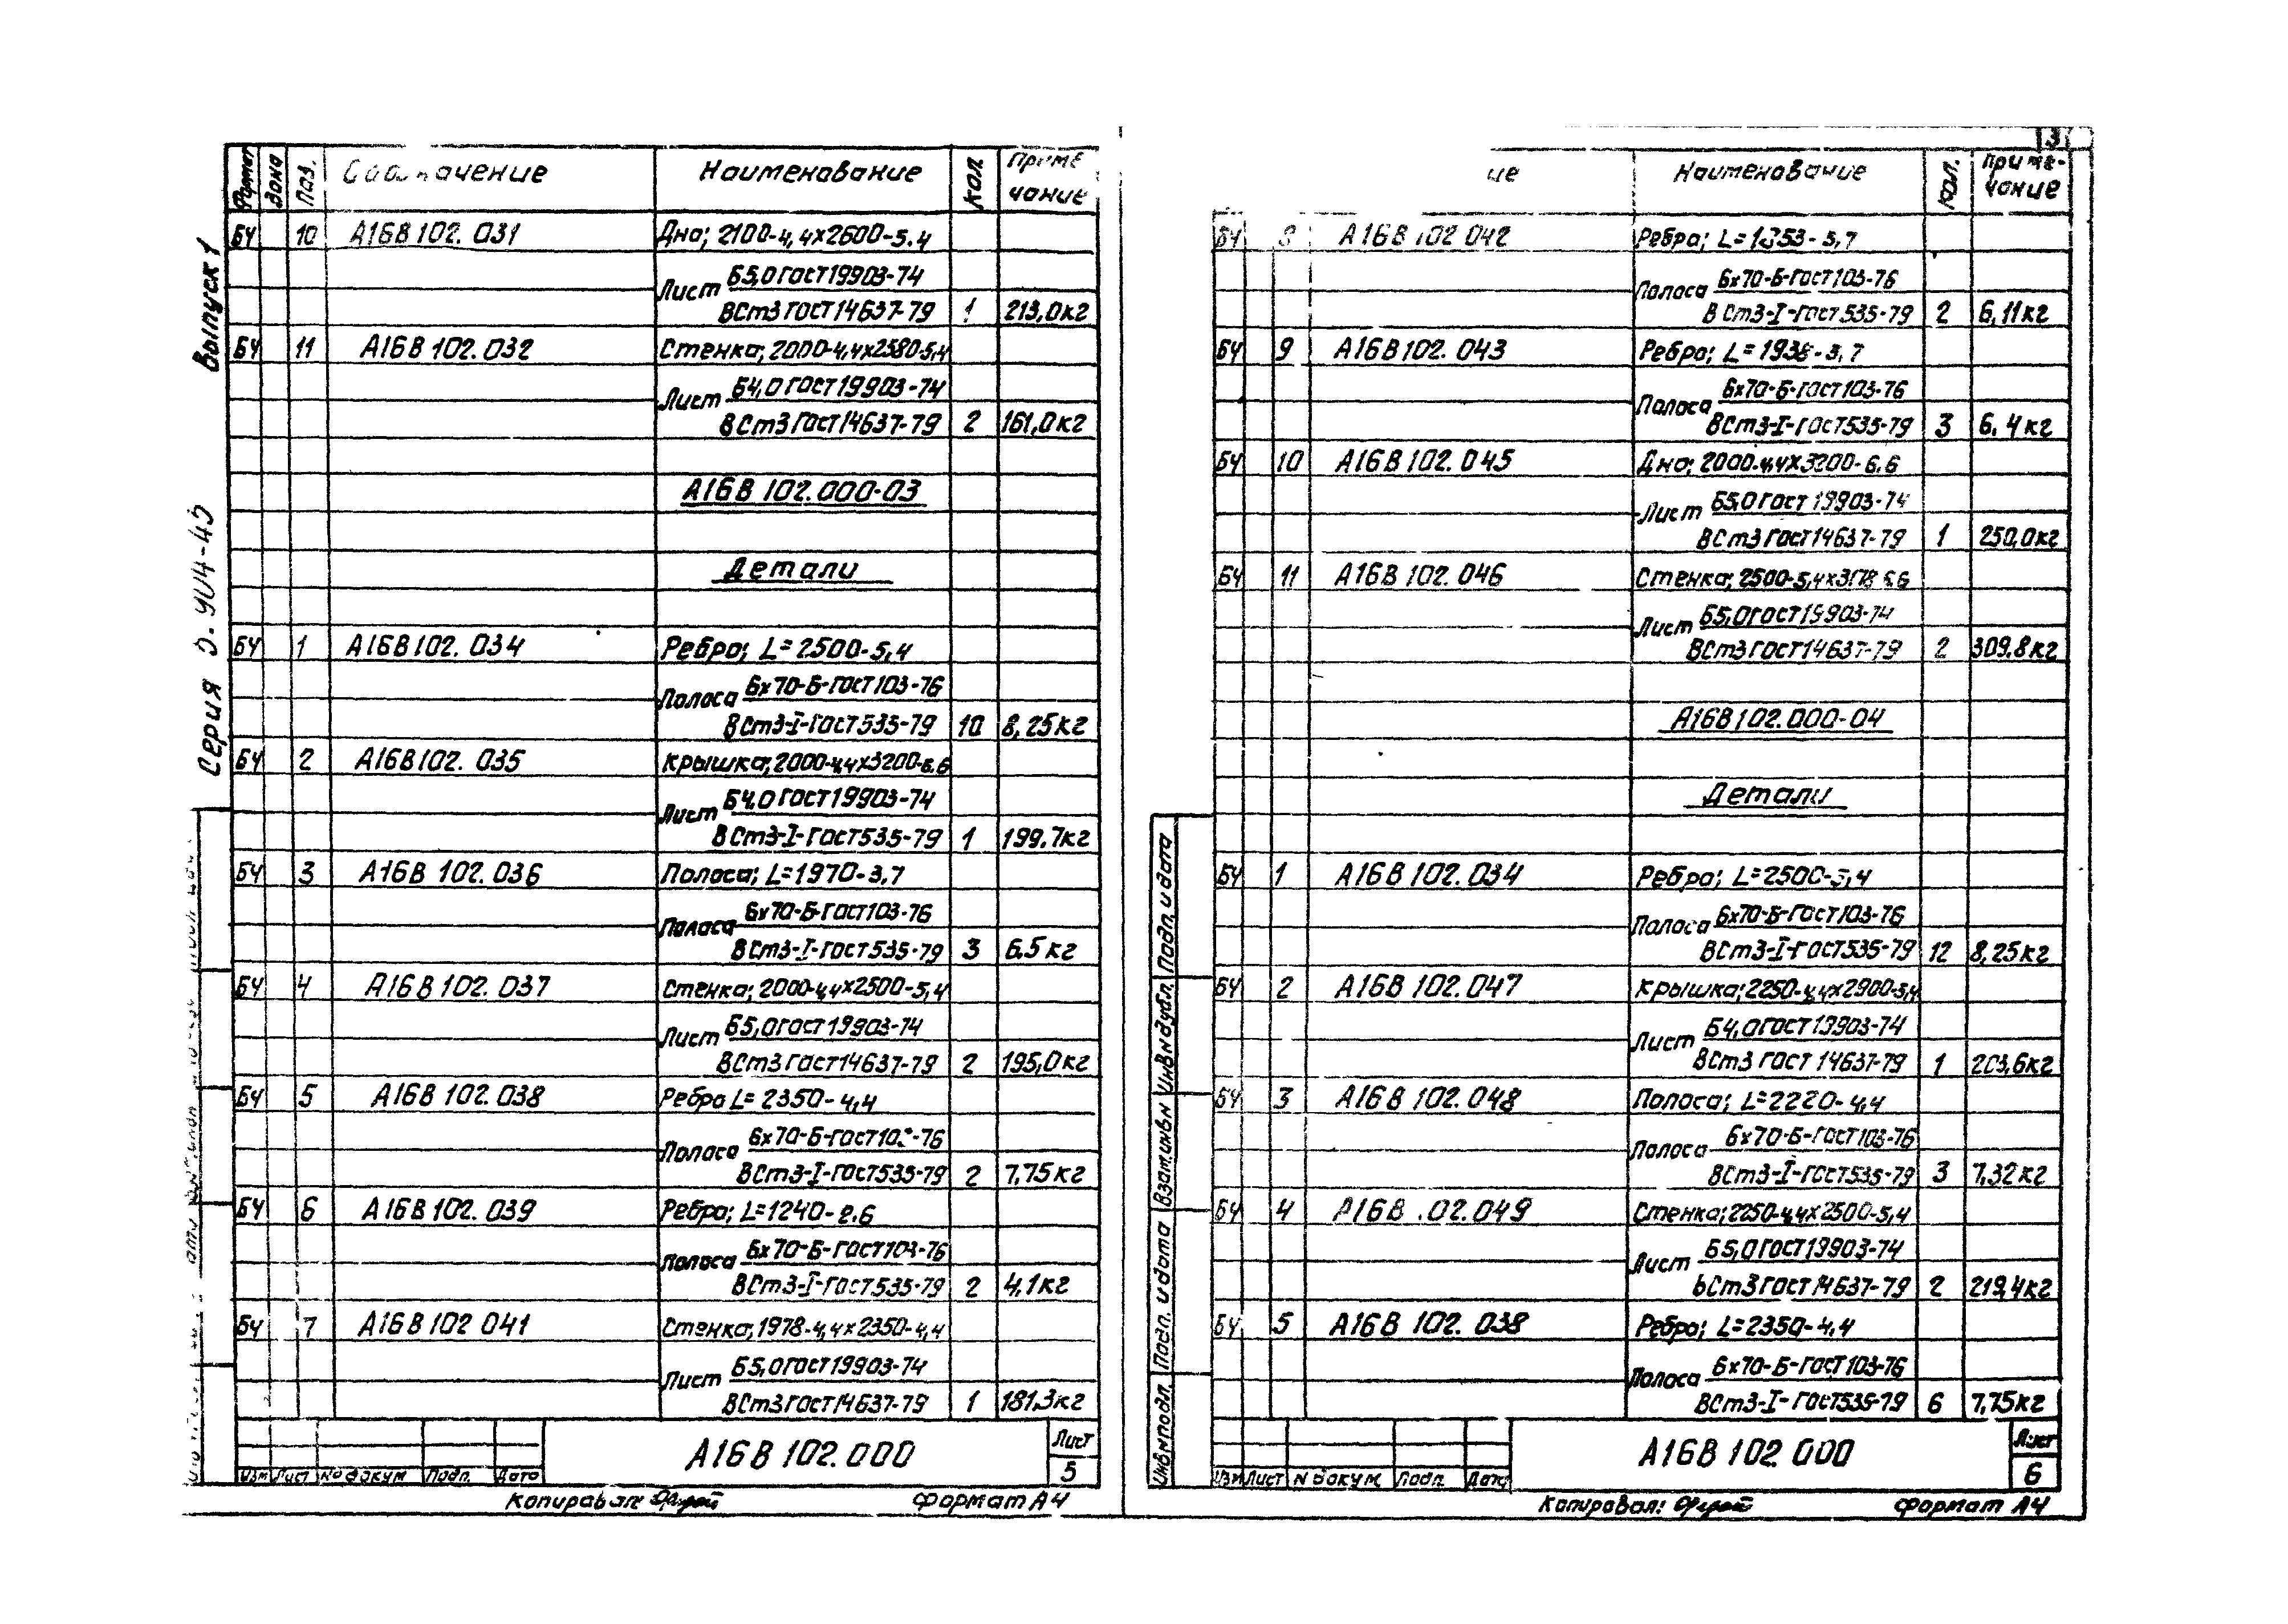 Формат Зона Поз. Наименование Кол. Приме
чание
БЧ 10 А16В102.031 Дно; 2100-4,4х2600-5.4
Лист Б5,0 ГОСТ19903-74
ВСт3 ГОСТ14637-79 1 213,0кг
БЧ 11 А16В102.032 Стенка; 2000-4,4х2580-5,4
Лист Б4,0 ГОСТ19903-74
ВСт3 ГОСТ14637-79 2 161,0кг
А16В102.000-03
Детали
БЧ 1 А16В102.034 Ребро; L=2500-5,4
Полоса 6х70-Б-ГОСТ103-76
ВСт3-I-ГОСТ535-79 10 8,25кг
БЧ 2 А16В102.035 Крышка; 2000-4,4х3200-6.6
Лист Б4,0 ГОСТ19903-74
ВСт3-I-ГОСТ535-79 1 199.7кг
БЧ 3 А16В102.036 Полоса; L=1970-3,7
Полоса 6х70-Б-ГОСТ103-76
ВСт3-I-ГОСТ535-79 3 6.5кг
БЧ 4 А16В102.037 Стенка; 2000-4,4х2500-5,4
Лист Б5,0 ГОСТ19903-74
ВСт3 ГОСТ14637-79 2 195,0кг
БЧ 5 А16В102.038 Ребро L=2350-4,4
Полоса
ВСт3-I-ГОСТ535-79 2 7,75кг
БЧ 6 А16В102.039 Ребро; L=1240-2.6
Полоса 6х70-Б-ГОСТ103-76
ВСт3-I-ГОСТ535-79 2 4,1кг
БЧ 7 А16В102 041 Стенка; 1978-4,4х2350-4,4
Лист Б5,0 ГОСТ19903-74
ВСт3 ГОСТ14637-79 1 181.3кг
А16В102.000
Лист
5
Изм Лист № докум Подп. Дата
Копировал: Формат А4
Выпуск 1
Серия
3
Наименование Кол. Приме-
чание
БЧ А16В102 042 Ребро;
Полоса 6х70-Б-ГОСТ103-76
ВСт3-I-ГОСТ535-79 2 6,11кг
БЧ 9 А16В102.043 Ребро; L=1938-3,7
Полоса 6х70-Б-ГОСТ103-76
ВСт3-I-ГОСТ535-79 3 6.4кг
БЧ 10 А16В102.045 Дно; 2000-4,4х3200-6.6
Лист Б5,0 ГОСТ19903-74
ВСт3 ГОСТ14637-79 1 250,0кг
БЧ 11 А16В102.046 Стенка;
Лист Б5,0 ГОСТ19903-74
ВСт3 ГОСТ14637-79 2 309.8кг
А16В102.000-04
Детали
БЧ 1 А16В102.034 Ребро; L=2500-5,4
Полоса 6х70-Б-ГОСТ103-76
ВСт3-I-ГОСТ535-79 12 8,25кг
БЧ 2 А16В102.047 Крышка; 2250-4,4х2900-5,4
Лист Б4,0 ГОСТ19903-74
ВСт3 ГОСТ14637-79 1 203,6кг
БЧ 3 А16В102.048 Полоса; L=2220-4,4
Полоса 6х70-Б-ГОСТ103-76
ВСт3-I-ГОСТ535-79 3 7,32кг
БЧ 4 Стенка; 2250-4,4х2500-5,4
Лист Б5,0 ГОСТ19903-74
ВСт3 ГОСТ14637-79 2 219,4кг
БЧ 5 А16В102.038 Ребро; L=2350-4,4
Полоса 6х70-Б-ГОСТ103-76
ВСт3-I-ГОСТ535-79 6 7,75кг
А16В102 000
Лист
6
Изм Лист № докум Подп. Дата
Копировал: Формат А4
Инв.№подл. Подп. и дата Взам.инв№ Инв№дубл. Подп. и дата